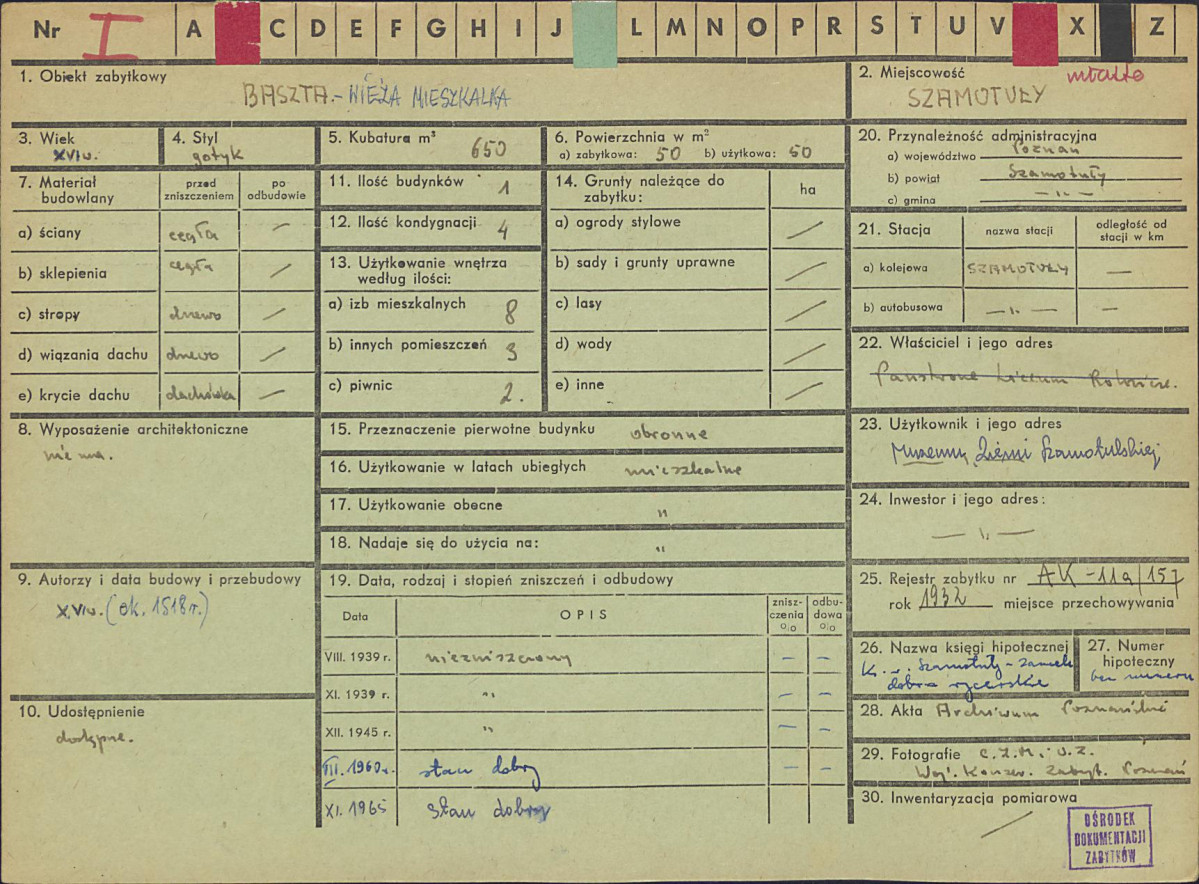 Nr I A C D E F G H I J L M N O P R S T U V X Z
1. Obiekt zabytkowy
BASZTA - WIEŻA MIESZKALNA
2. Miejscowość miasto
SZAMOTUŁY
3. Wiek
XVI w.
4. Styl
gotyk
5. Kubatura m³ 650
6. Powierzchnia w m²
a) zabytkowa: 50 b) użytkowa: 50
20. Przynależność administracyjna
a) województwo Poznań
b) powiat Szamotuły
c) gmina — „ —
7. Materiał budowlany
przed zniszczeniem
po odbudowie
a) ściany cegła —
b) sklepienia cegła —
c) stropy drzewo —
d) wiązania dachu drzewo —
e) krycie dachu dachówka —
11. Ilość budynków 1
12. Ilość kondygnacji 4
13. Użytkowanie wnętrza
według ilości:
a) izb mieszkalnych 8
b) innych pomieszczeń 3
c) piwnic 2.
14. Grunty należące do
zabytku: ha
a) ogrody stylowe —
b) sady i grunty uprawne —
c) lasy —
d) wody —
e) inne —
21. Stacja
nazwa stacji
odległość od
stacji w km
a) kolejowa SZAMOTUŁY —
b) autobusowa — „ — —
22. Właściciel i jego adres
Państwowe Liceum Rolnicze.
8. Wyposażenie architektoniczne
nie ma.
15. Przeznaczenie pierwotne budynku obronne
16. Użytkowanie w latach ubiegłych mieszkalne
17. Użytkowanie obecne „
18. Nadaje się do użycia na: „
23. Użytkownik i jego adres
Muzeum Ziemi Szamotulskiej
24. Inwestor i jego adres:
— „ —
9. Autorzy i data budowy i przebudowy
XVI w. (ok. 1518 r.)
19. Data, rodzaj i stopień zniszczeń i odbudowy
Data OPIS
znisz-
czenia
%
odbu-
dowa
%
VIII. 1939 r. niezniszczony — —
XI. 1939 r. „ — —
XII. 1945 r. „ — —
VIII. 1960 r. stan dobry — —
XI. 1965 stan dobry
25. Rejestr zabytku nr AK-11a/157
rok 1932 miejsce przechowywania
26. Nazwa księgi hipotecznej
Szamotuły - zamek
dobra rycerskie
27. Numer
hipoteczny
bez numeru
10. Udostępnienie
dostępne.
28. Akta Archiwum Poznańskie
29. Fotografie C.Z.M. i O.Z.
Woj. Konserw. Zabyt. Poznań
30. Inwentaryzacja pomiarowa
—
OŚRODEK
DOKUMENTACJI
ZABYTKÓW